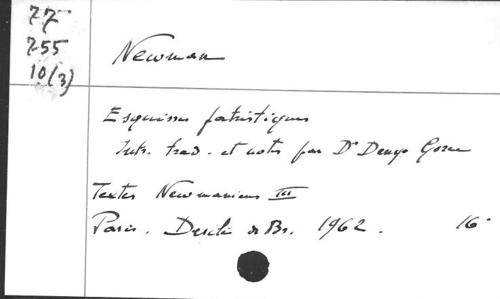 77
255
10(3)
Newman
Esquisses patristiques
Intr. trad. et notes par Dr Denys Gorce
Textes Newmaniens III
Paris. Desclée de Br. 1962. 16°